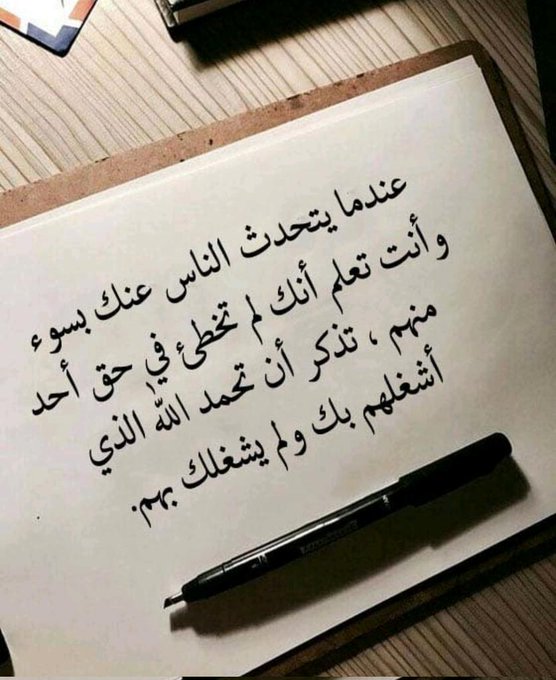 عندما يتحدث الناس عنك بسوء
وأنت تعلم أنك لم تخطئ في حق أحد
منهم ، تذكر أن تحمد الله الذي
أشغلهم بك ولم يشغلك بهم.